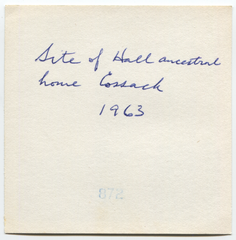 Site of Hall ancestral
home Cossack
1963
872